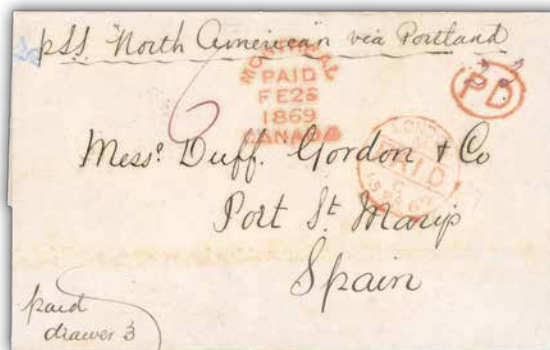 pSS "North American" via Portland
MONTREAL
PAID
FE 26
1869
CANADA
PD
6
LOND
PAID
C
Messrs Duff. Gordon & Co
Port St. Marys
Spain
paid
drawer 3